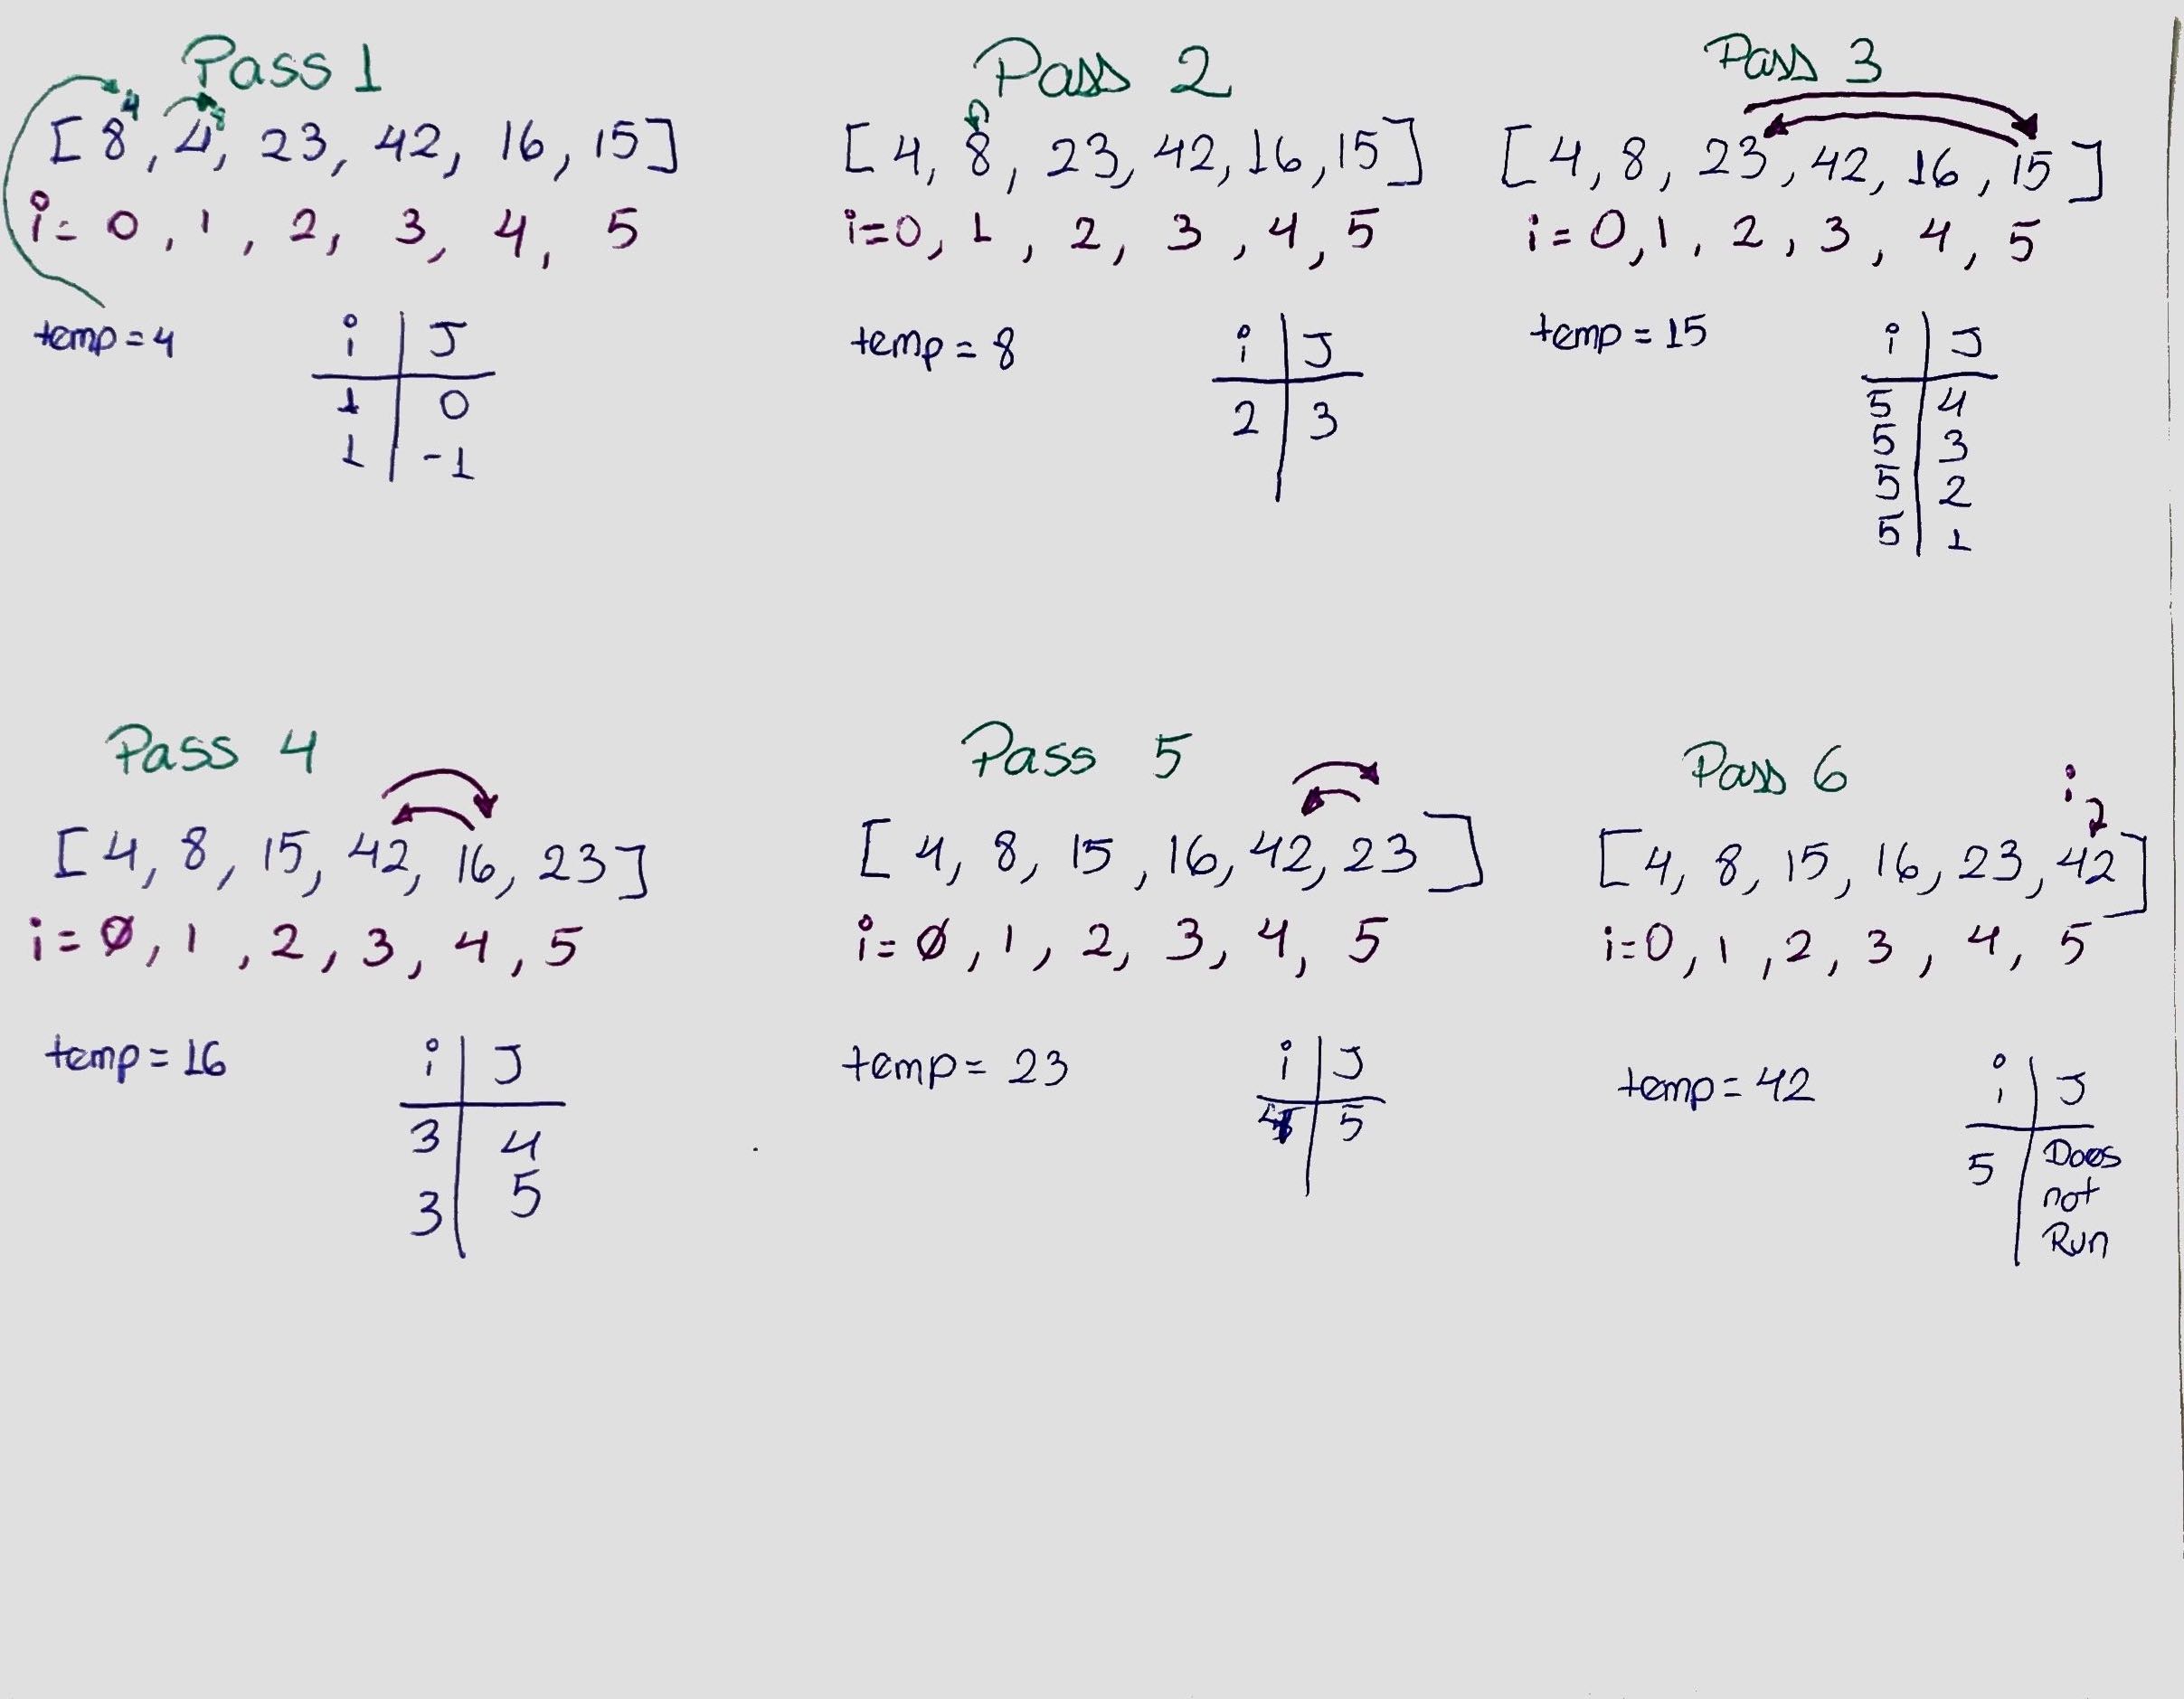 Pass 1
4 8
[8, 4, 23, 42, 16, 15]
i= 0, 1, 2, 3, 4, 5
temp=4
i J
1 0
1 -1
Pass 2
[4, 8, 23, 42, 16, 15]
i=0, 1, 2, 3, 4, 5
temp = 8
i J
2 3
Pass 3
[4, 8, 23, 42, 16, 15]
i = 0, 1, 2, 3, 4, 5
temp = 15
i J
5 4
5 3
5 2
5 1
Pass 4
[4, 8, 15, 42, 16, 23]
i = 0, 1, 2, 3, 4, 5
temp = 16
i J
3 4
3 5
Pass 5
[4, 8, 15, 16, 42, 23]
i= 0, 1, 2, 3, 4, 5
temp = 23
i J
4 5
Pass 6
i
[4, 8, 15, 16, 23, 42]
i=0, 1, 2, 3, 4, 5
temp = 42
i J
5 Does
not
Run